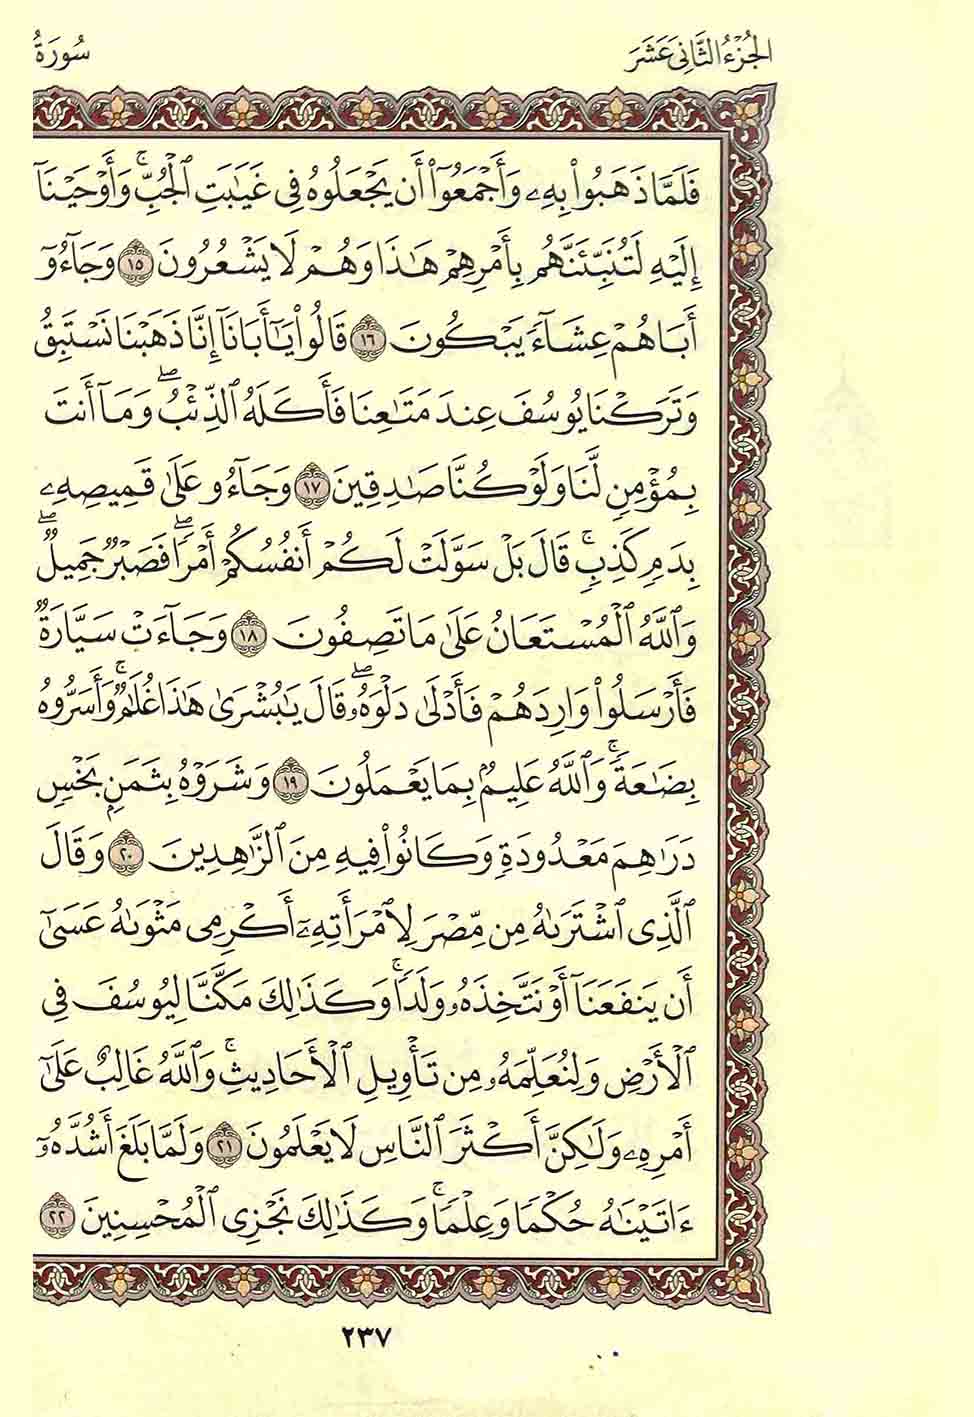 الجُزْءُ الثَّانِي عَشَرَ
سُورَةُ
فَلَمَّا ذَهَبُوا۟ بِهِۦ وَأَجْمَعُوٓا۟ أَن يَجْعَلُوهُ فِى غَيَٰبَتِ ٱلْجُبِّ ۚ وَأَوْحَيْنَآ
إِلَيْهِ لَتُنَبِّئَنَّهُم بِأَمْرِهِمْ هَٰذَا وَهُمْ لَا يَشْعُرُونَ ١٥ وَجَآءُوٓ
أَبَاهُمْ عِشَآءً يَبْكُونَ ١٦ قَالُوا۟ يَٰٓأَبَانَآ إِنَّا ذَهَبْنَا نَسْتَبِقُ
وَتَرَكْنَا يُوسُفَ عِندَ مَتَٰعِنَا فَأَكَلَهُ ٱلذِّئْبُ ۖ وَمَآ أَنتَ
بِمُؤْمِنٍ لَّنَا وَلَوْ كُنَّا صَٰدِقِينَ ١٧ وَجَآءُو عَلَىٰ قَمِيصِهِۦ
بِدَمٍ كَذِبٍ ۚ قَالَ بَلْ سَوَّلَتْ لَكُمْ أَنفُسُكُمْ أَمْرًا ۖ فَصَبْرٌ جَمِيلٌ ۖ
وَٱللَّهُ ٱلْمُسْتَعَانُ عَلَىٰ مَا تَصِفُونَ ١٨ وَجَآءَتْ سَيَّارَةٌ
فَأَرْسَلُوا۟ وَارِدَهُمْ فَأَدْلَىٰ دَلْوَهُۥ ۖ قَالَ يَٰبُشْرَىٰ هَٰذَا غُلَٰمٌ ۚ وَأَسَرُّوهُ
بِضَٰعَةً ۚ وَٱللَّهُ عَلِيمٌۢ بِمَا يَعْمَلُونَ ١٩ وَشَرَوْهُ بِثَمَنٍۭ بَخْسٍ
دَرَٰهِمَ مَعْدُودَةٍ وَكَانُوا۟ فِيهِ مِنَ ٱلزَّٰهِدِينَ ٢٠ وَقَالَ
ٱلَّذِى ٱشْتَرَىٰهُ مِن مِّصْرَ لِٱمْرَأَتِهِۦٓ أَكْرِمِى مَثْوَىٰهُ عَسَىٰٓ
أَن يَنفَعَنَآ أَوْ نَتَّخِذَهُۥ وَلَدًا ۚ وَكَذَٰلِكَ مَكَّنَّا لِيُوسُفَ فِى
ٱلْأَرْضِ وَلِنُعَلِّمَهُۥ مِن تَأْوِيلِ ٱلْأَحَادِيثِ ۚ وَٱللَّهُ غَالِبٌ عَلَىٰٓ
أَمْرِهِۦ وَلَٰكِنَّ أَكْثَرَ ٱلنَّاسِ لَا يَعْلَمُونَ ٢١ وَلَمَّا بَلَغَ أَشُدَّهُۥٓ
ءَاتَيْنَٰهُ حُكْمًا وَعِلْمًا ۚ وَكَذَٰلِكَ نَجْزِى ٱلْمُحْسِنِينَ ٢٢
٢٣٧